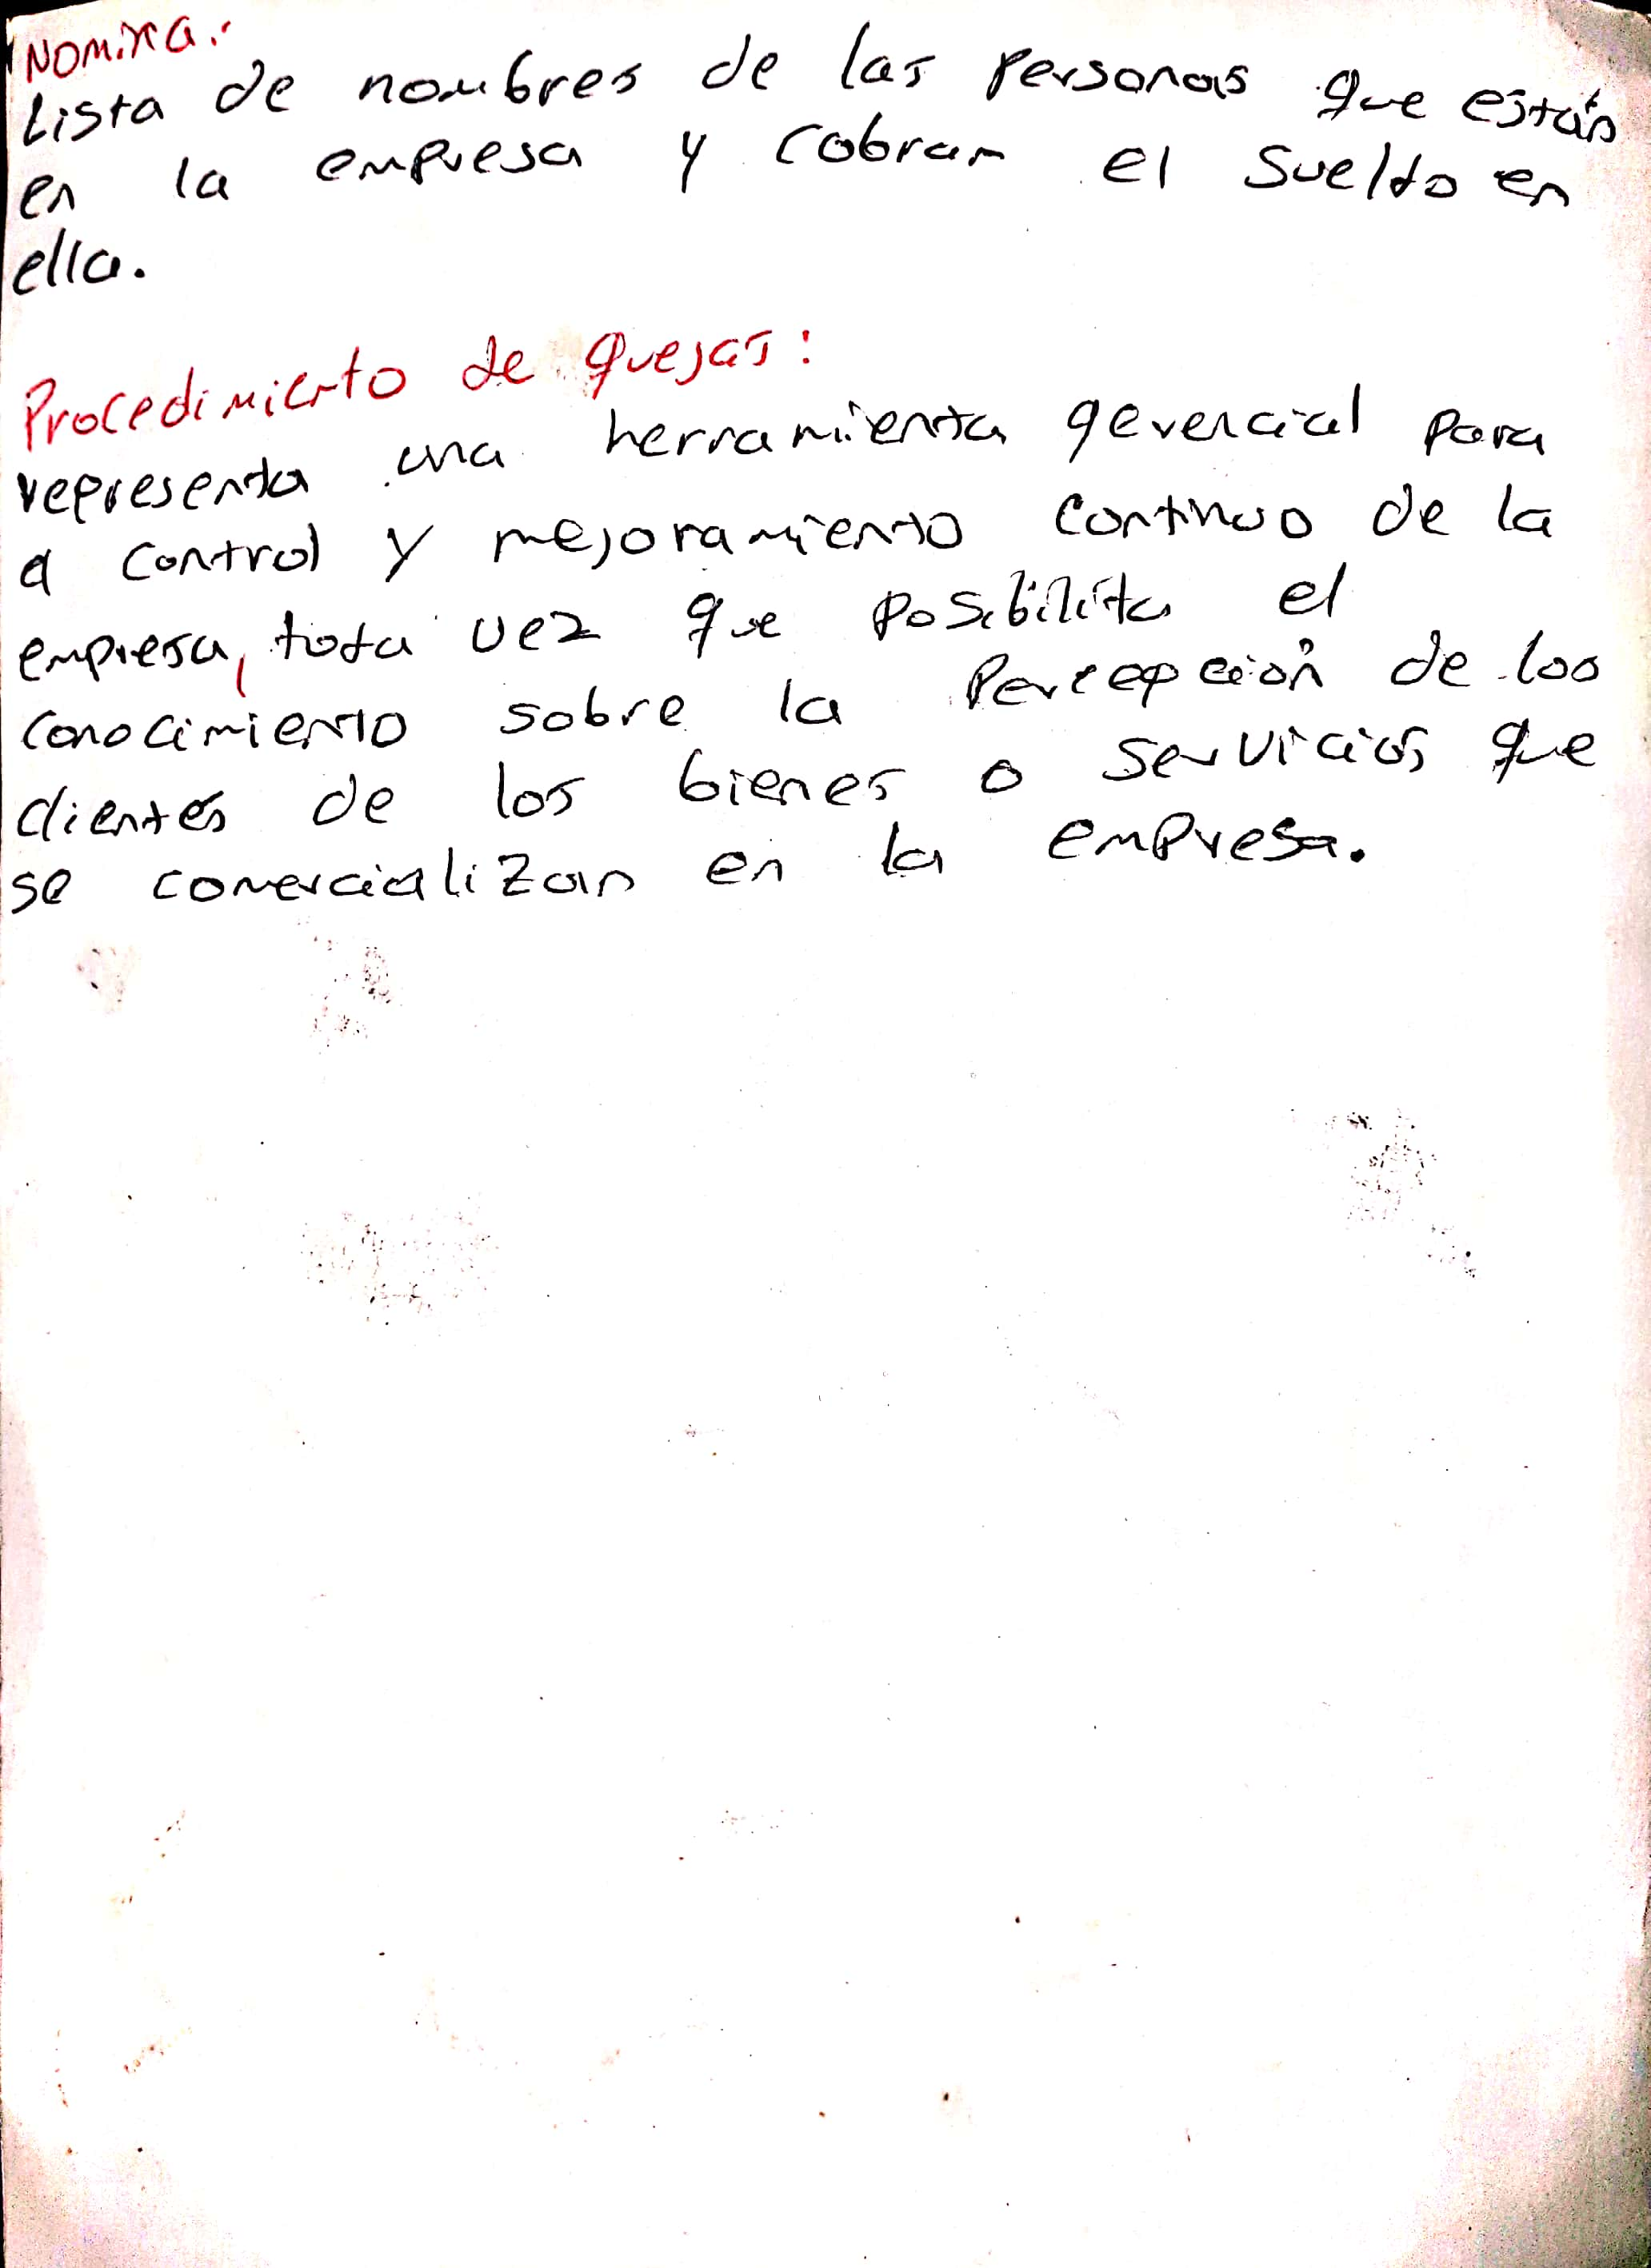 Nomina:
Lista de nombres de las personas que están
en la empresa y cobran el sueldo en
ella.
Procedimiento de quejas:
representa una herramienta gerencial para
el control y mejoramiento continuo de la
empresa, toda vez que posibilita el
conocimiento sobre la Percepción de los
clientes de los bienes o servicios que
se comercializan en la empresa.